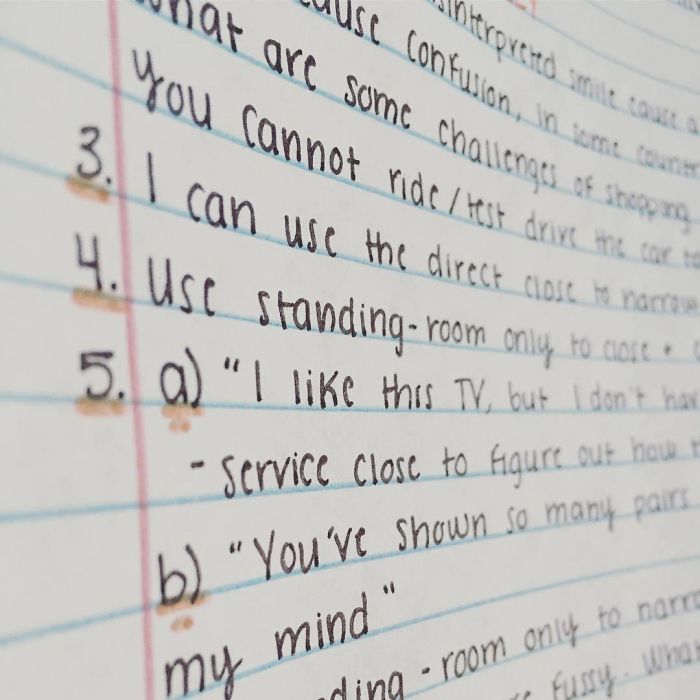 cause confusion, in some
misinterpreted smile cause a
What are some challenges of shopping
you cannot ride/test drive the car to
3. I can use the direct close to narrow
4. Use standing-room only to close +
5. a) "I like this TV, but I don't hav
- service close to figure out how
b) "You've shown so many pairs
my mind"
ding-room only to narro
fussy. What